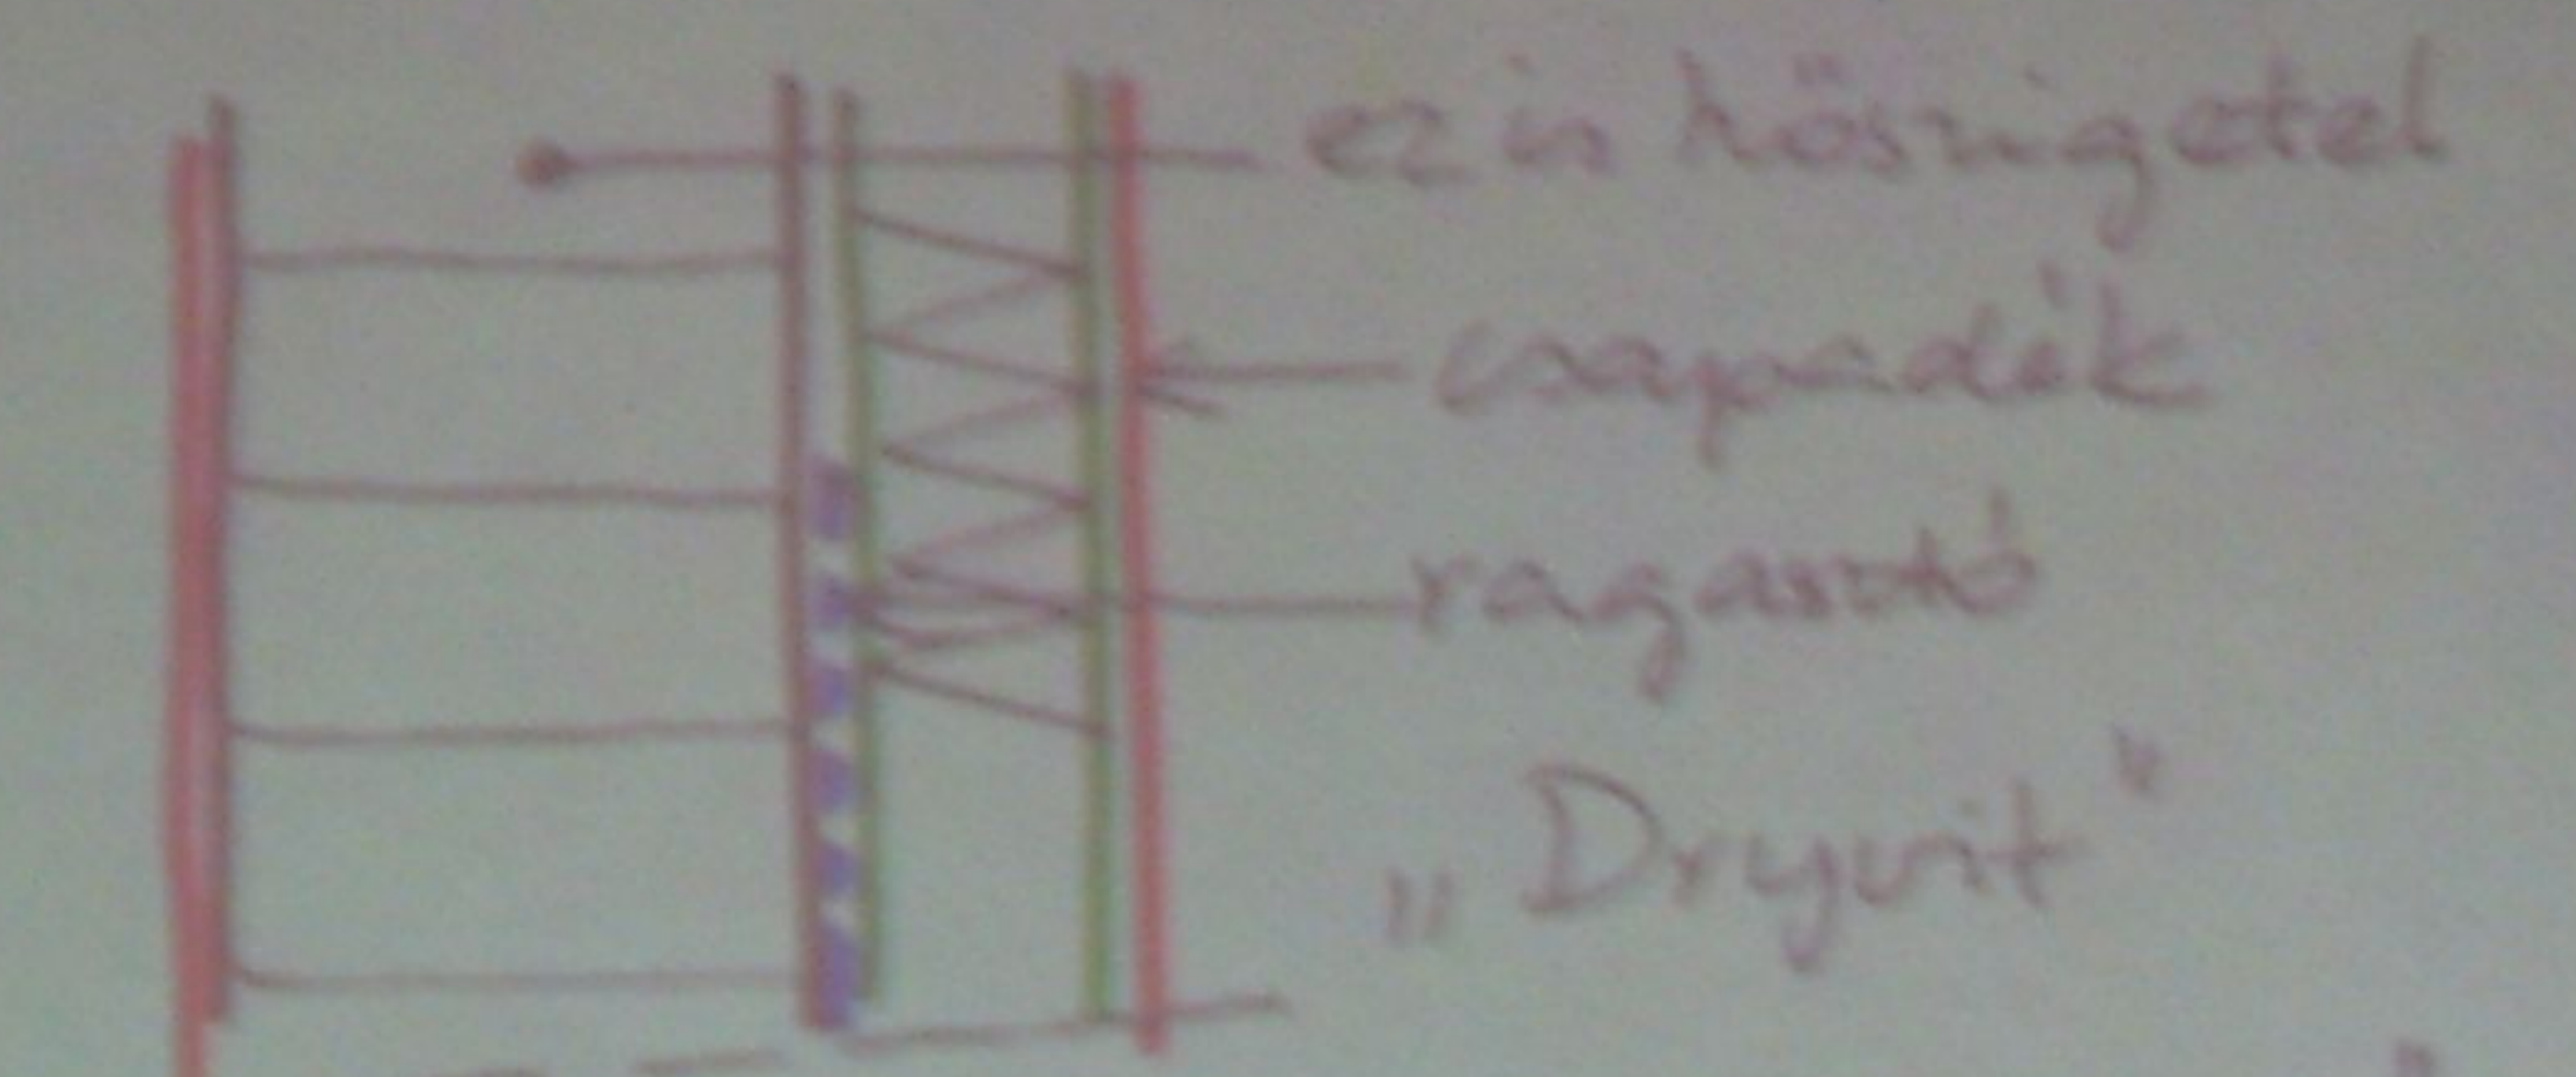 ez is hőszigetel
csapadék
ragasztó
„Dryvit"